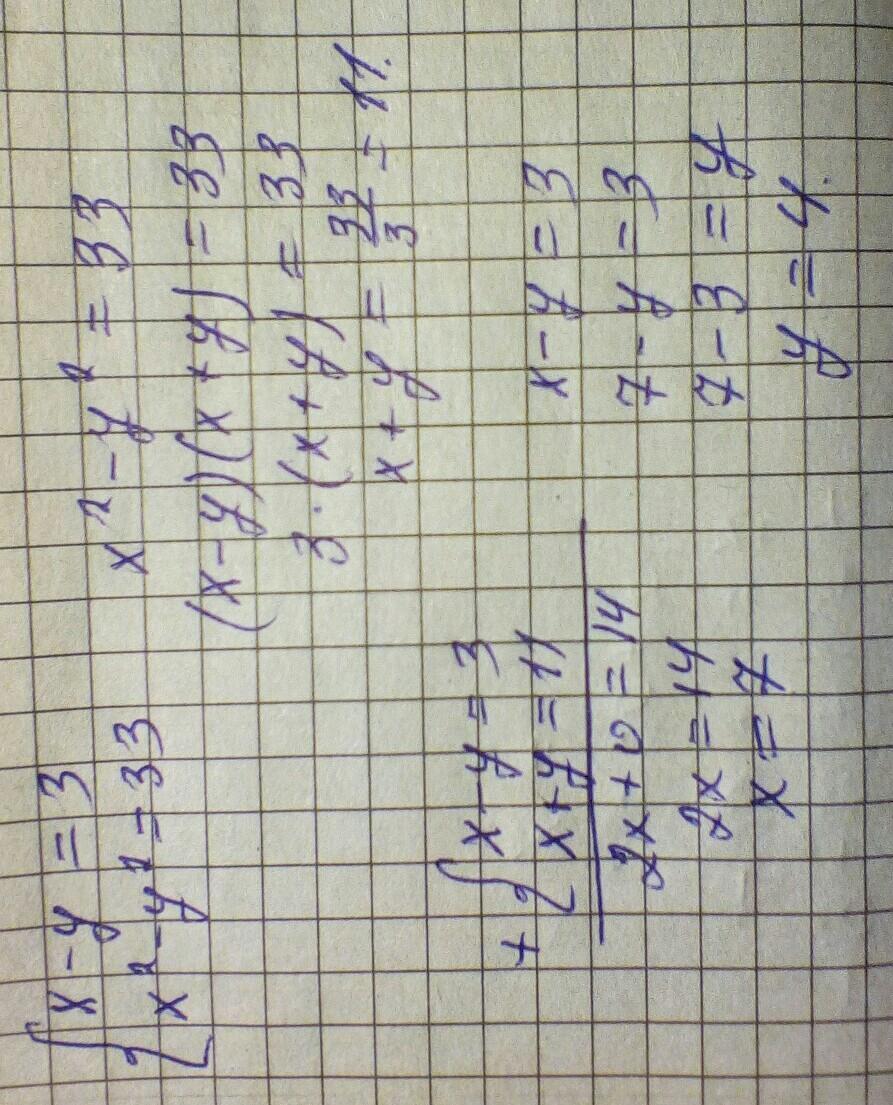 { x - y = 3
x² - y² = 33
x² - y² = 33
(x - y)(x + y) = 33
3 · (x + y) = 33
x + y = 33/3 = 11.
+ { x - y = 3
x + y = 11
2x + 0 = 14
2x = 14
x = 7
x - y = 3
7 - y = 3
7 - 3 = y
y = 4.